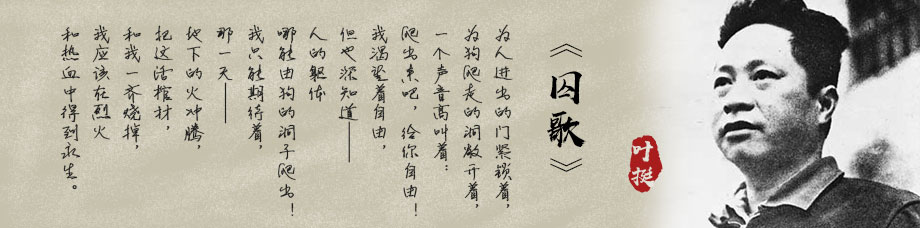 《囚歌》
叶挺
为人进出的门紧锁着,
为狗爬走的洞敞开着,
一个声音高叫着:
爬出来吧,给你自由!
我渴望着自由,
但也深知道——
人的躯体
哪能由狗的洞子爬出!
我只能期待着,
那一天——
地下的火冲腾,
把这活棺材,
和我一齐烧掉,
我应该在烈火
和热血中得到永生。